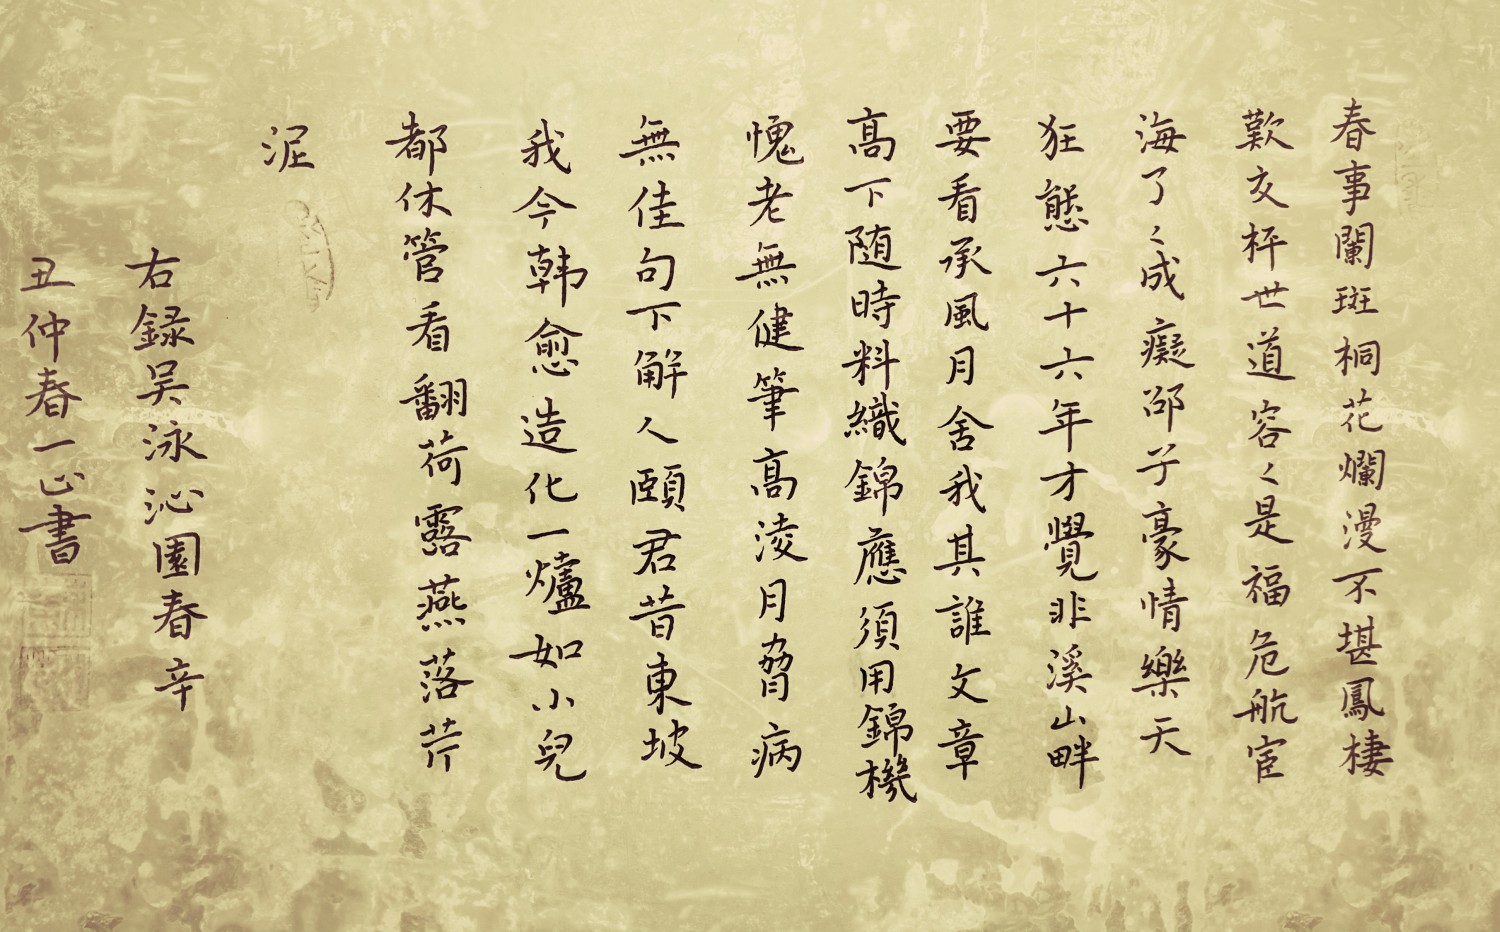 春事闌斑桐花爛漫不堪鳳棲
歎交枰世道容〻是福危航宦
海了〻成癡邵子豪情樂天
狂態六十六年才覺非溪山畔
要看承風月舍我其誰文章
高下随時料織錦應須用錦機
愧老無健筆高淩月脅病
無佳句下解人頤君昔東坡
我今韓愈造化一爐如小兒
都休管看翻荷露燕落芹
泥
右録吴泳沁園春辛
丑仲春一心書